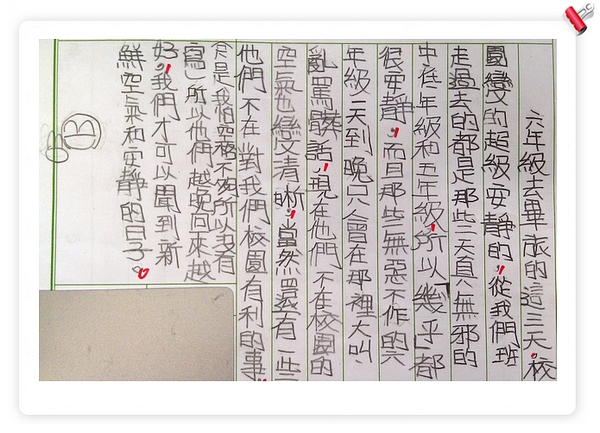 六年級去畢旅的這三天,校
園變的超級安靜的,從我們班
走過去的都是那些天真無邪的
中低年級和五年級,所以幾乎都
很安靜,而且那些無惡不作的六
年級一天到晚只會在那裡大叫、
亂罵髒話,現在他們不在校園的
空氣也變清晰,當然還有一些
他們不在對我們校園有利的事
只是我怕空格不夠所以沒有
寫」所以他們越晚回來越
好,我們才可以聞到新
鮮空氣和安靜的日子。